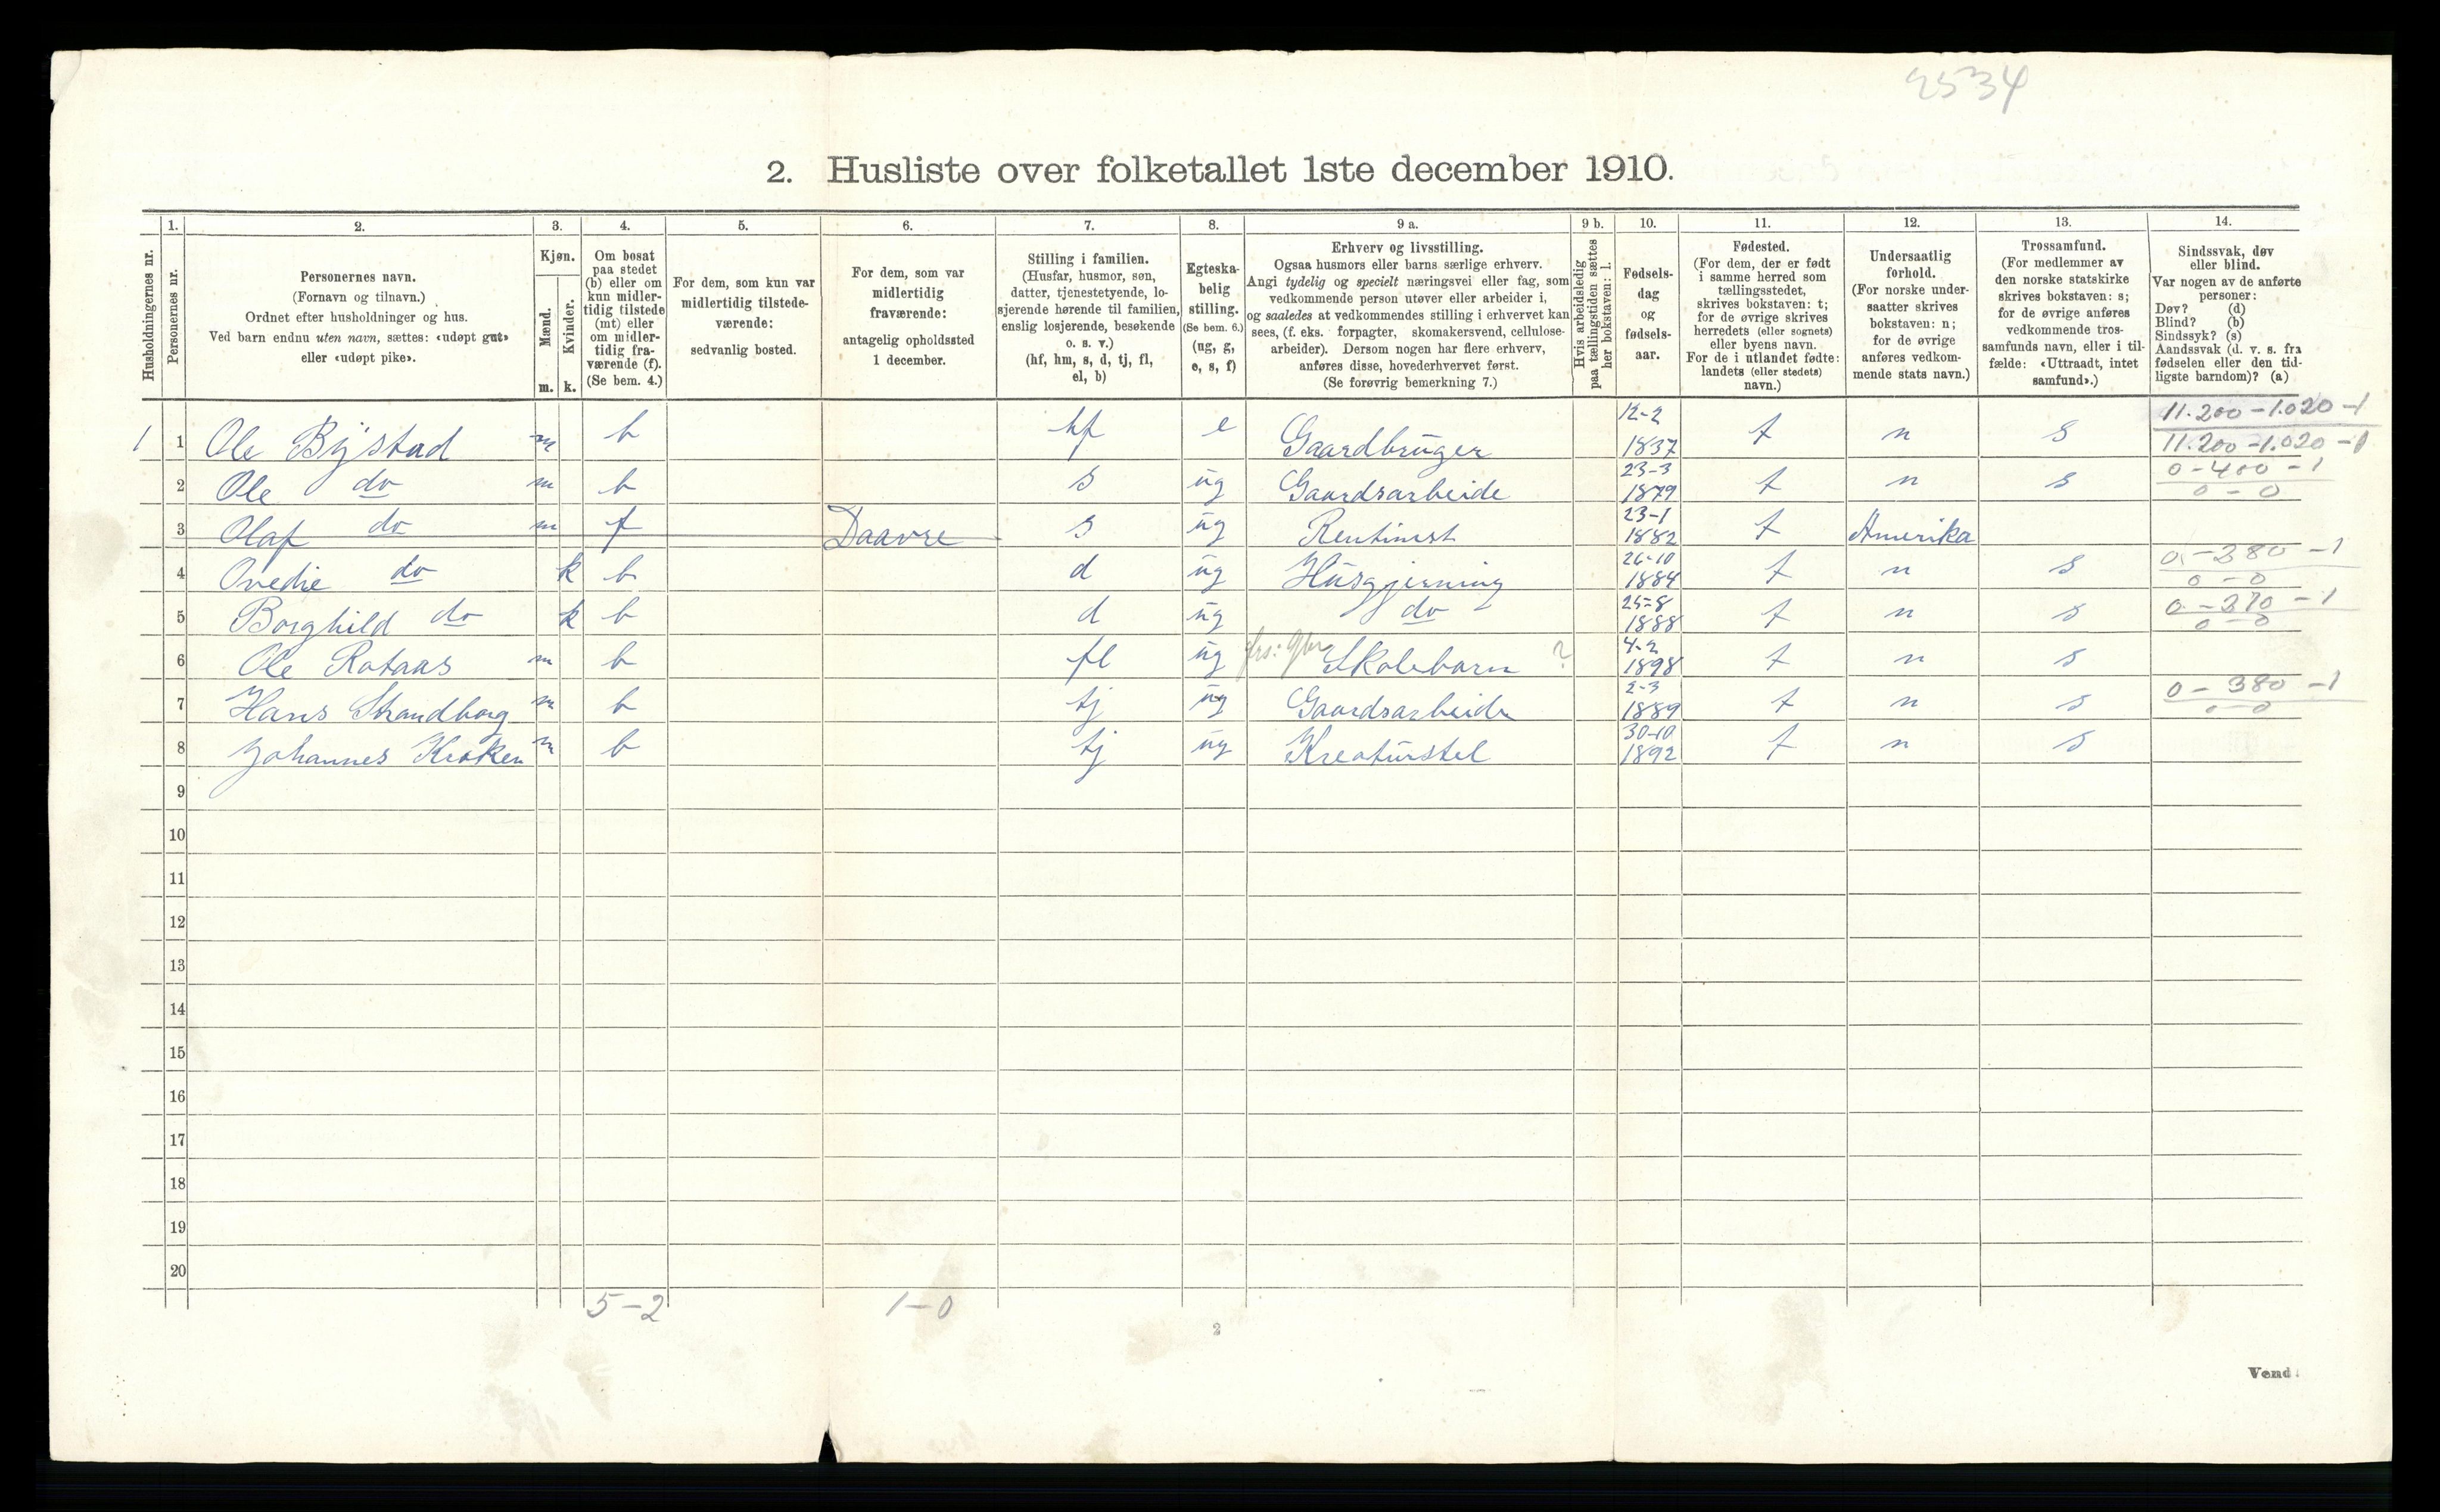 2534
2. Husliste over folketallet 1ste december 1910.
Husholdningernes nr.
1.
Personernes nr.
2.
Personernes navn.
(Fornavn og tilnavn.)
Ordnet efter husholdninger og hus.
Ved barn endnu uten navn, sættes: «udøpt gut»
eller «udøpt pike».
3.
Kjøn.
Mænd.
m.
Kvinder.
k.
4.
Om bosat
paa stedet
(b) eller om
kun midler-
tidig tilstede
(mt) eller
om midler-
tidig fra-
værende (f).
(Se bem. 4.)
5.
For dem, som kun var
midlertidig tilstede-
værende:
sedvanlig bosted.
6.
For dem, som var
midlertidig
fraværende:
antagelig opholdssted
1 december.
7.
Stilling i familien.
(Husfar, husmor, søn,
datter, tjenestetyende, lo-
sjerende hørende til familien,
enslig losjerende, besøkende
o. s. v.)
(hf, hm, s, d, tj, fl,
el, b)
8.
Egteska-
belig
stilling.
(Se bem. 6.)
(ug, g,
e, s, f)
9 a.
Erhverv og livsstilling.
Ogsaa husmors eller barns særlige erhverv.
Angi tydelig og specielt næringsvei eller fag, som
vedkommende person utøver eller arbeider i,
og saaledes at vedkommendes stilling i erhvervet kan
sees, (f. eks. forpagter, skomakersvend, cellulose-
arbeider). Dersom nogen har flere erhverv,
anføres disse, hovederhvervet først.
(Se forøvrig bemerkning 7.)
9 b.
Hvis arbeidsledig
paa tællingstiden sættes
her bokstaven: l.
10.
Fødsels-
dag
og
fødsels-
aar.
11.
Fødested.
(For dem, der er født
i samme herred som
tællingsstedet,
skrives bokstaven: t;
for de øvrige skrives
herredets (eller sognets)
eller byens navn.
For de i utlandet fødte:
landets (eller stedets)
navn.)
12.
Undersaatlig
forhold.
(For norske under-
saatter skrives
bokstaven: n;
for de øvrige
anføres vedkom-
mende stats navn.)
13.
Trossamfund.
(For medlemmer av
den norske statskirke
skrives bokstaven: s;
for de øvrige anføres
vedkommende tros-
samfunds navn, eller i til-
fælde: «Uttraadt, intet
samfund».)
14.
Sindssvak, døv
eller blind.
Var nogen av de anførte
personer:
Døv? (d)
Blind? (b)
Sindssyk? (s)
Aandssvak (d. v. s. fra
fødselen eller den tid-
ligste barndom)? (a)
1 1 Ole Bÿstad m b hf e Gaardbruger 12-2 1837 t n s 11.200-1.020-1
11.200-1.020-1
2 Ole do m b s ug Gaardsarbeide 23-3 1879 t n s 0-400-1
0-0
3 Olaf do m f Daavre s ug Rentinist 23-1 1882 t Amerika
4 Ovedie do k b d ug Husgjerning 26-10 1884 t n s 0-380-1
0-0
5 Borghild do k b d ug do 25-8 1888 t n s 0-370-1
0-0
6 Ole Rataas m b fl ug Skolebarn ? 4-2 1898 t n s
7 Hans Strandborg m b tj ug Gaardsarbeide 2-3 1889 t n s 0-380-1
0-0
8 Johannes Kroken m b tj ug Kreaturstel 30-10 1892 t n s
9
10
11
12
13
14
15
16
17
18
19
20
5-2 1-0
2
Vend